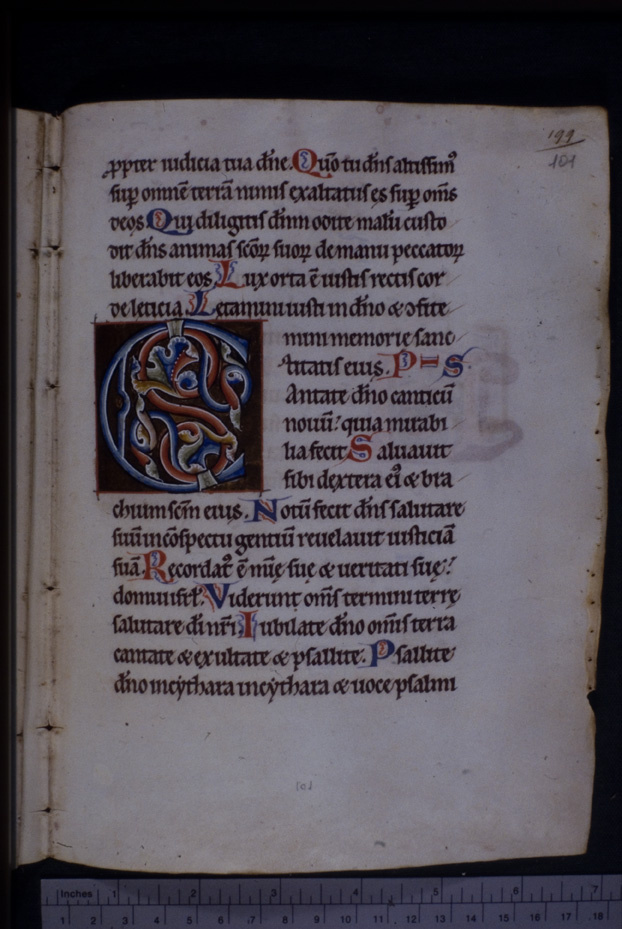 199
101
ꝓpter iudicia tua dn̄e. Quō tu dn̄s altissimꝰ
suꝑ omnē terrā nimis exaltatus es suꝑ om̄s
deos Qui diligitis dn̄m odite malū custo
dit dn̄s animas sc̄oꝝ suoꝝ de manu peccatoꝝ
liberabit eos Lux orta ē iustis rectis cor
de leticia Letamini iusti in dn̄o & ꝯfite
mini memorie sanc
titatis eius. P S
C Antate dn̄o canticū
nouū: quia mirabi
lia fecit Saluauit
sibi dextera eiꝰ & bra
chium sc̄m eius. Notū fecit dn̄s salutare
suū in cōspectu gentiū reuelauit iusticiā
suā. Recordatꝰ ē mīę suę & ueritati suę:
domui isrł. Viderunt om̄s termini terrę
salutare dī nr̄i Iubilate dn̄o om̄is terra
cantate & exultate & psallite. Psallite
dn̄o in cẏthara in cẏthara & uoce psalmi
101
Inches 1 2 3 4 5 6 7
1 2 3 4 5 6 7 8 9 10 11 12 13 14 15 16 17 18